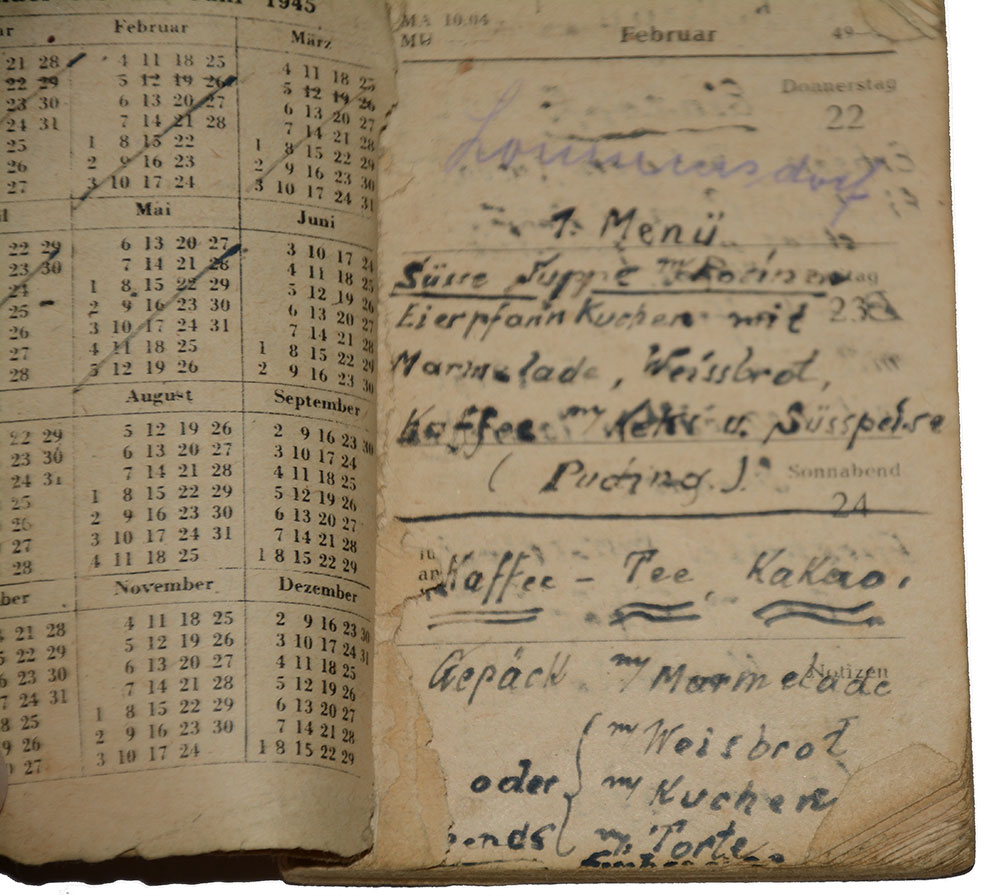 1945
Februar
4 11 18 25
5 12 19 26
6 13 20 27
7 14 21 28
1 8 15 22
2 9 16 23
3 10 17 24
März
4 11 18 25
5 12 19 26
6 13 20 27
7 14 21 28
1 8 15 22 29
2 9 16 23 30
3 10 17 24 31
21 28
22 29
23 30
24 31
25
26
27
Mai
6 13 20 27
7 14 21 28
1 8 15 22 29
2 9 16 23 30
3 10 17 24 31
4 11 18 25
5 12 19 26
Juni
3 10 17 24
4 11 18 25
5 12 19 26
6 13 20 27
7 14 21 28
1 8 15 22 29
2 9 16 23 30
22 29
23 30
24
25
26
27
28
August
5 12 19 26
6 13 20 27
7 14 21 28
1 8 15 22 29
2 9 16 23 30
3 10 17 24 31
4 11 18 25
September
2 9 16 23 30
3 10 17 24
4 11 18 25
5 12 19 26
6 13 20 27
7 14 21 28
1 8 15 22 29
22 29
23 30
24 31
25
26
27
28
November
4 11 18 25
5 12 19 26
6 13 20 27
7 14 21 28
1 8 15 22 29
2 9 16 23 30
3 10 17 24
Dezember
2 9 16 23 30
3 10 17 24 31
4 11 18 25
5 12 19 26
6 13 20 27
7 14 21 28
1 8 15 22 29
21 28
22 29
23 30
24 31
25
26
27
MA 10.04
MU Februar 49
Donnerstag
22
1. Menü
Süsse Suppe m/ Rosinen
23
Eierpfann Kuchen mit
Marmelade, Weissbrot,
Kaffee m/ Keks u. Süsspeise
(Puding.).
Sonnabend
24
Kaffee – Tee, Kakao.
Notizen
Gepäck m/ Marmelade
m/ Weisbrot
oder m/ Kuchen
m/ Torte